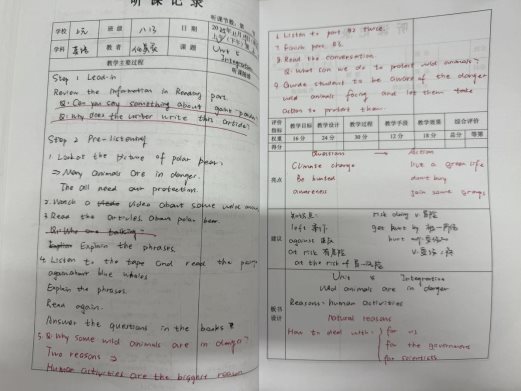 听课记录
听课节数:第 节
学校 班级 八(3) 日期
学科 英语 教者 课题 Unit 5 Integration
教学主要过程 听课随感
Step 1 Lead-in
Review the information in Reading part.
Q: Can you say something about giant pandas
Q: Why does the writer write this article?
Step 2 Pre-listening
1. Look at the picture of polar bear.
⇒ Many animals are in danger.
The all need our protection.
2. Watch a video about some wild animals
3. Read the articles about polar bear.
Q: Who are talking?
Explain the phrases.
4. Listen to the tape and read the
about blue whales
Explain the phrases.
Read again.
Answer the questions in the books
5. Q: Why some wild animals are in danger?
Two reasons ⇒
Human activities are the biggest reason
6. Listen to part B2 twice.
7. Finish part B3.
8. Read the conversation.
Q: What can we do to protect wild animals?
9. Guide student to be aware of the danger
wild animals facing and let them take
action to protect them.
评价指标 教学目标 教学设计 教学过程 教学手段 教学效果 综合评价
权重 16分 24分 30分 12分 18分 总分 等第
得分
亮点
Question → Action
Climate change live a green life
Be hunted don't buy
awareness join some groups
建议
知识点: risk doing v. 冒险
left 剩下 get hurt by
against hurt
at risk 有危险
at the risk of 冒……风险
板书设计
Unit 5 Integration
Wild animals are in danger
Reasons: human activities
Natural reasons
How to deal with: for us
for the government
for scientists